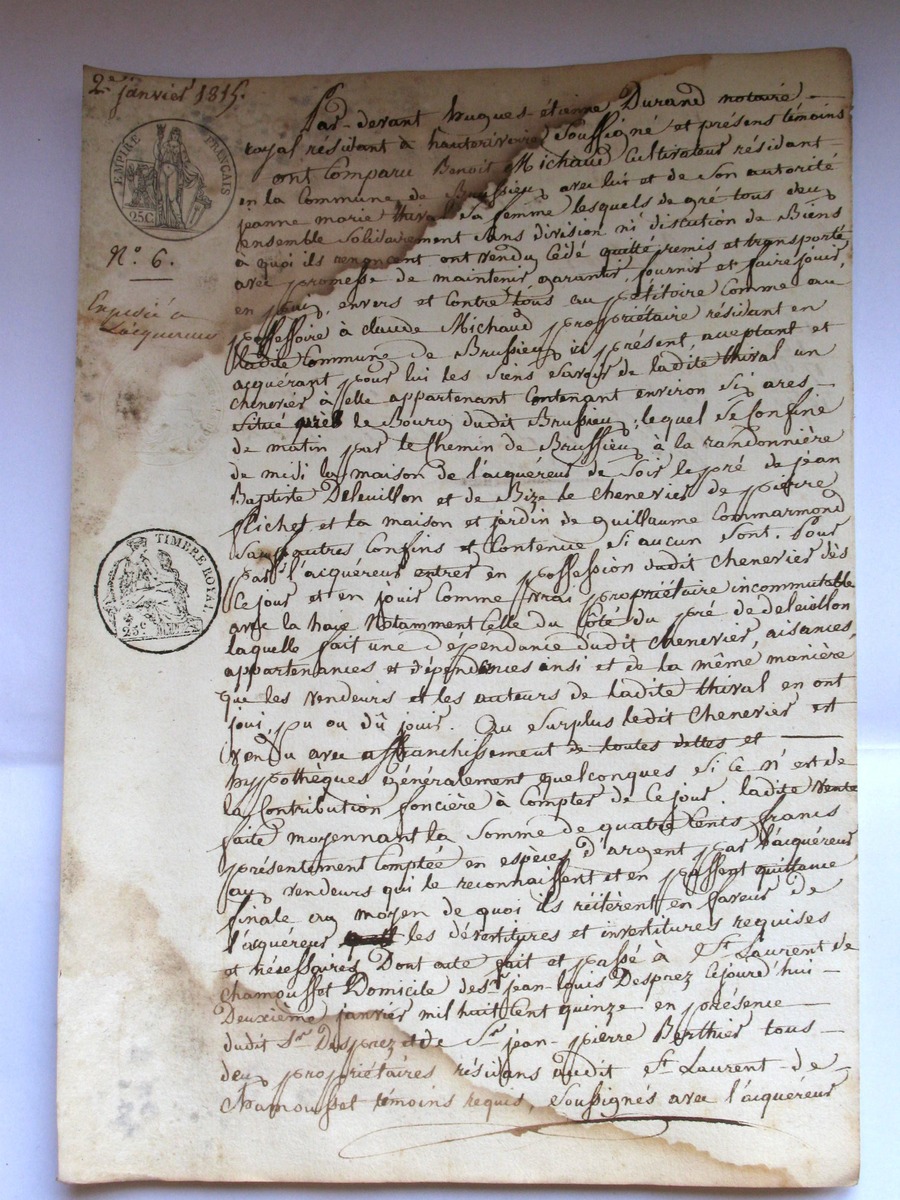 2e janvier 1815.
EMPIRE FRANÇAIS
25C
N.o 6.
Expédié a
l'acquereur
TIMBRE ROYAL
25c
Par-devant hugues-étienne Durand notaire
royal résidant à hauterivoire soussigné et présens témoins
ont comparu Benoit Michaud Cultivateur résidant
en la Commune de Brussieu, avec lui et de son autorité
jeanne marie thival sa femme lesquels de gré tous deux
ensemble solidairement sans division ni discution de Biens
à quoi ils renoncent ont vendu cédé quitté remis et transporté
avec promesse de maintenir garantir, fournir et faire jouir,
en paix, envers et contre tous au pétitoire comme au
possessoire à claude Michaud propriétaire résidant en
ladite Commune de Brussieu ici présent, aceptant et
acquérant pour lui les siens savoir de ladite thival un
chenevier à elle appartenant contenant environ six ares
situé près le Bourg dudit Brussieu; lequel se confine
de matin par le chemin de Brussieu à la randonnière
de midi la maison de l'acquéreur de soir le pré de jean
Baptiste Deleuillon et de Bize le chenevier de pierre
flichet et la maison et jardin de guillaume Commarmond
sauf autres confins et contenue si aucun sont. Pour
par l'acquéreur entrer en possession dudit chenevier dès
ce jour et en jouir comme vrai propriétaire incommutable
avec la haie notamment celle du côté du pré de deleuillon
laquelle fait une dépendance dudit chenevier, aisances,
appartenances et dépendances ensi et de la même manière
que les vendeurs et les auteurs de ladite thival en ont
joui, pu ou dû jouir. Au surplus ledit chenevier est
vendu avec affranchissement de toutes dettes et
hypothèques généralement quelconques si ce n'est de
la contribution foncière à compter de ce jour. ladite vente
faite moyennant la somme de quatre cents francs
présentement comptée en espèces d'argent par l'acquéreur
aux vendeurs qui le reconnaissent et en passent quittance
finale au moyen de quoi ils réitèrent en faveur de
l'acquéreur les dévestitures et investitures requises
et nésessaires Dont acte fait et passé à St. Laurent de
chamousset Domicile de Sr. jean-louis Desprez cejourd'hui
Deuxième janvier mil huit cent quinze en présence
dudit Sr. Desprez et de Sr. jean-pierre Berthier tous
deux propriétaires résidans audit St. Laurent-de
Chamousset témoins requis, soussignés avec l'acquéreur